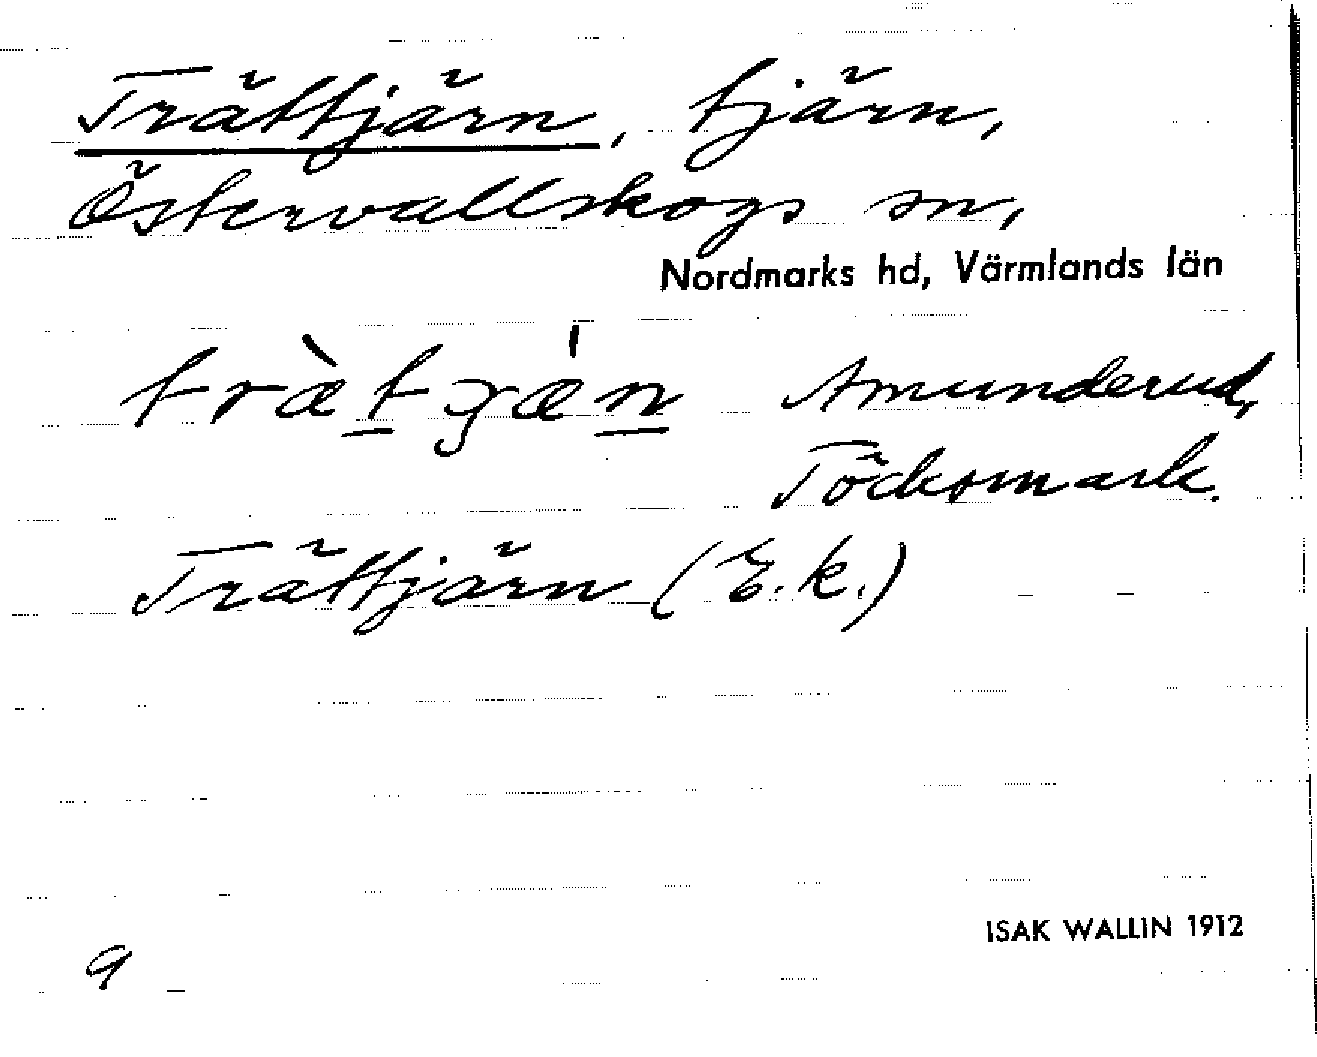 Trättjärn, tjärn,
Östervallskogs sn,
Nordmarks hd, Värmlands län
træ̀tʒǽn Amunderud,
Töcksmark.
Trättjärn (E.k.)
ISAK WALLIN 1912
9